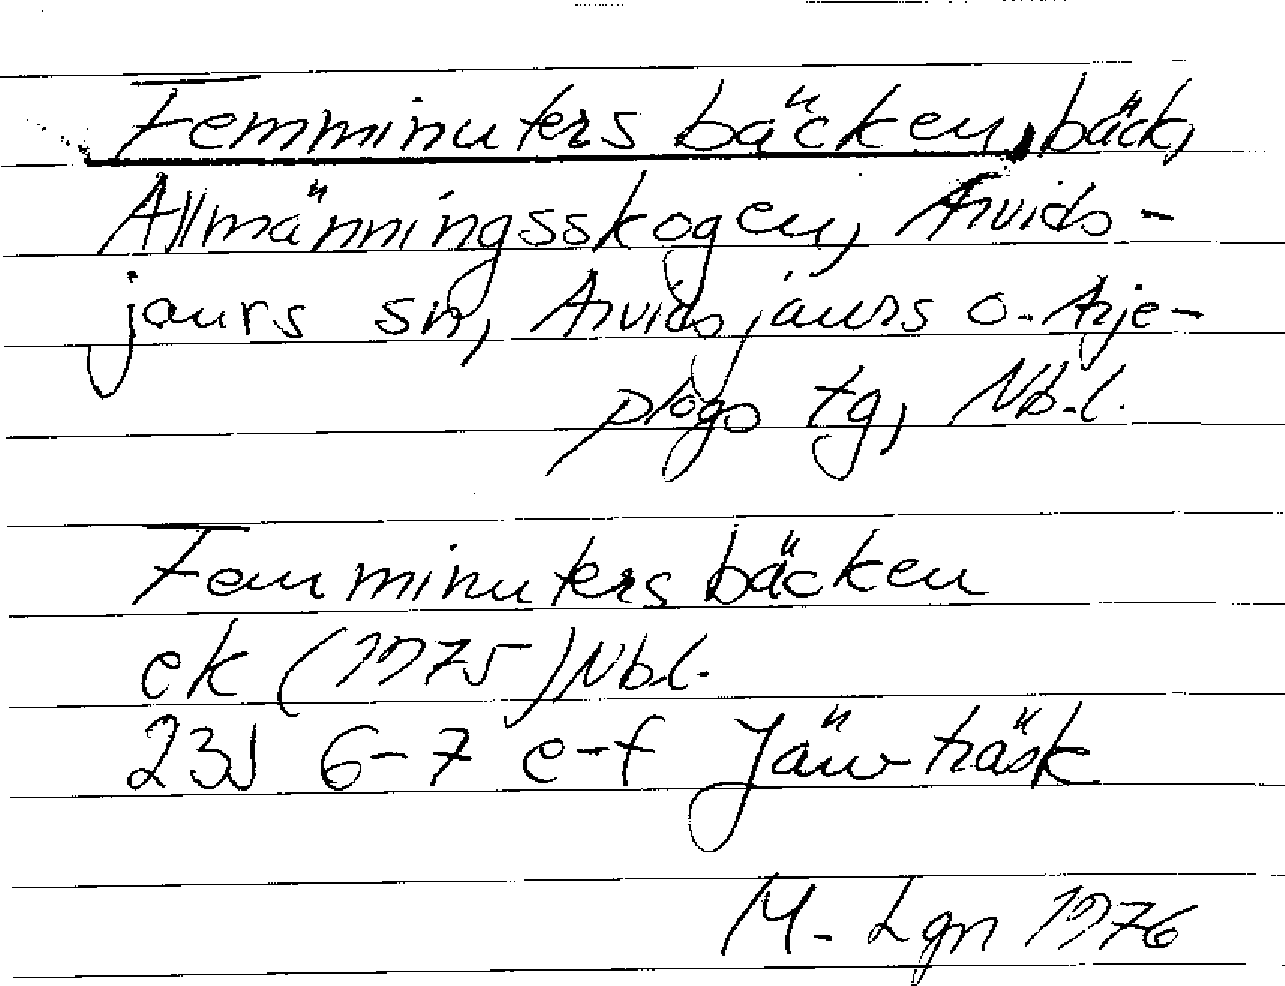 Femminutersbäcken, bäck,
Allmänningsskogen, Arvids-
jaurs sn, Arvidsjaurs o. Arje-
plogs tg, Nb.l.
Femminutersbäcken
ek (1975) Nb.l.
23J 6-7 e-f Jävträsk
M. Lgn 1976